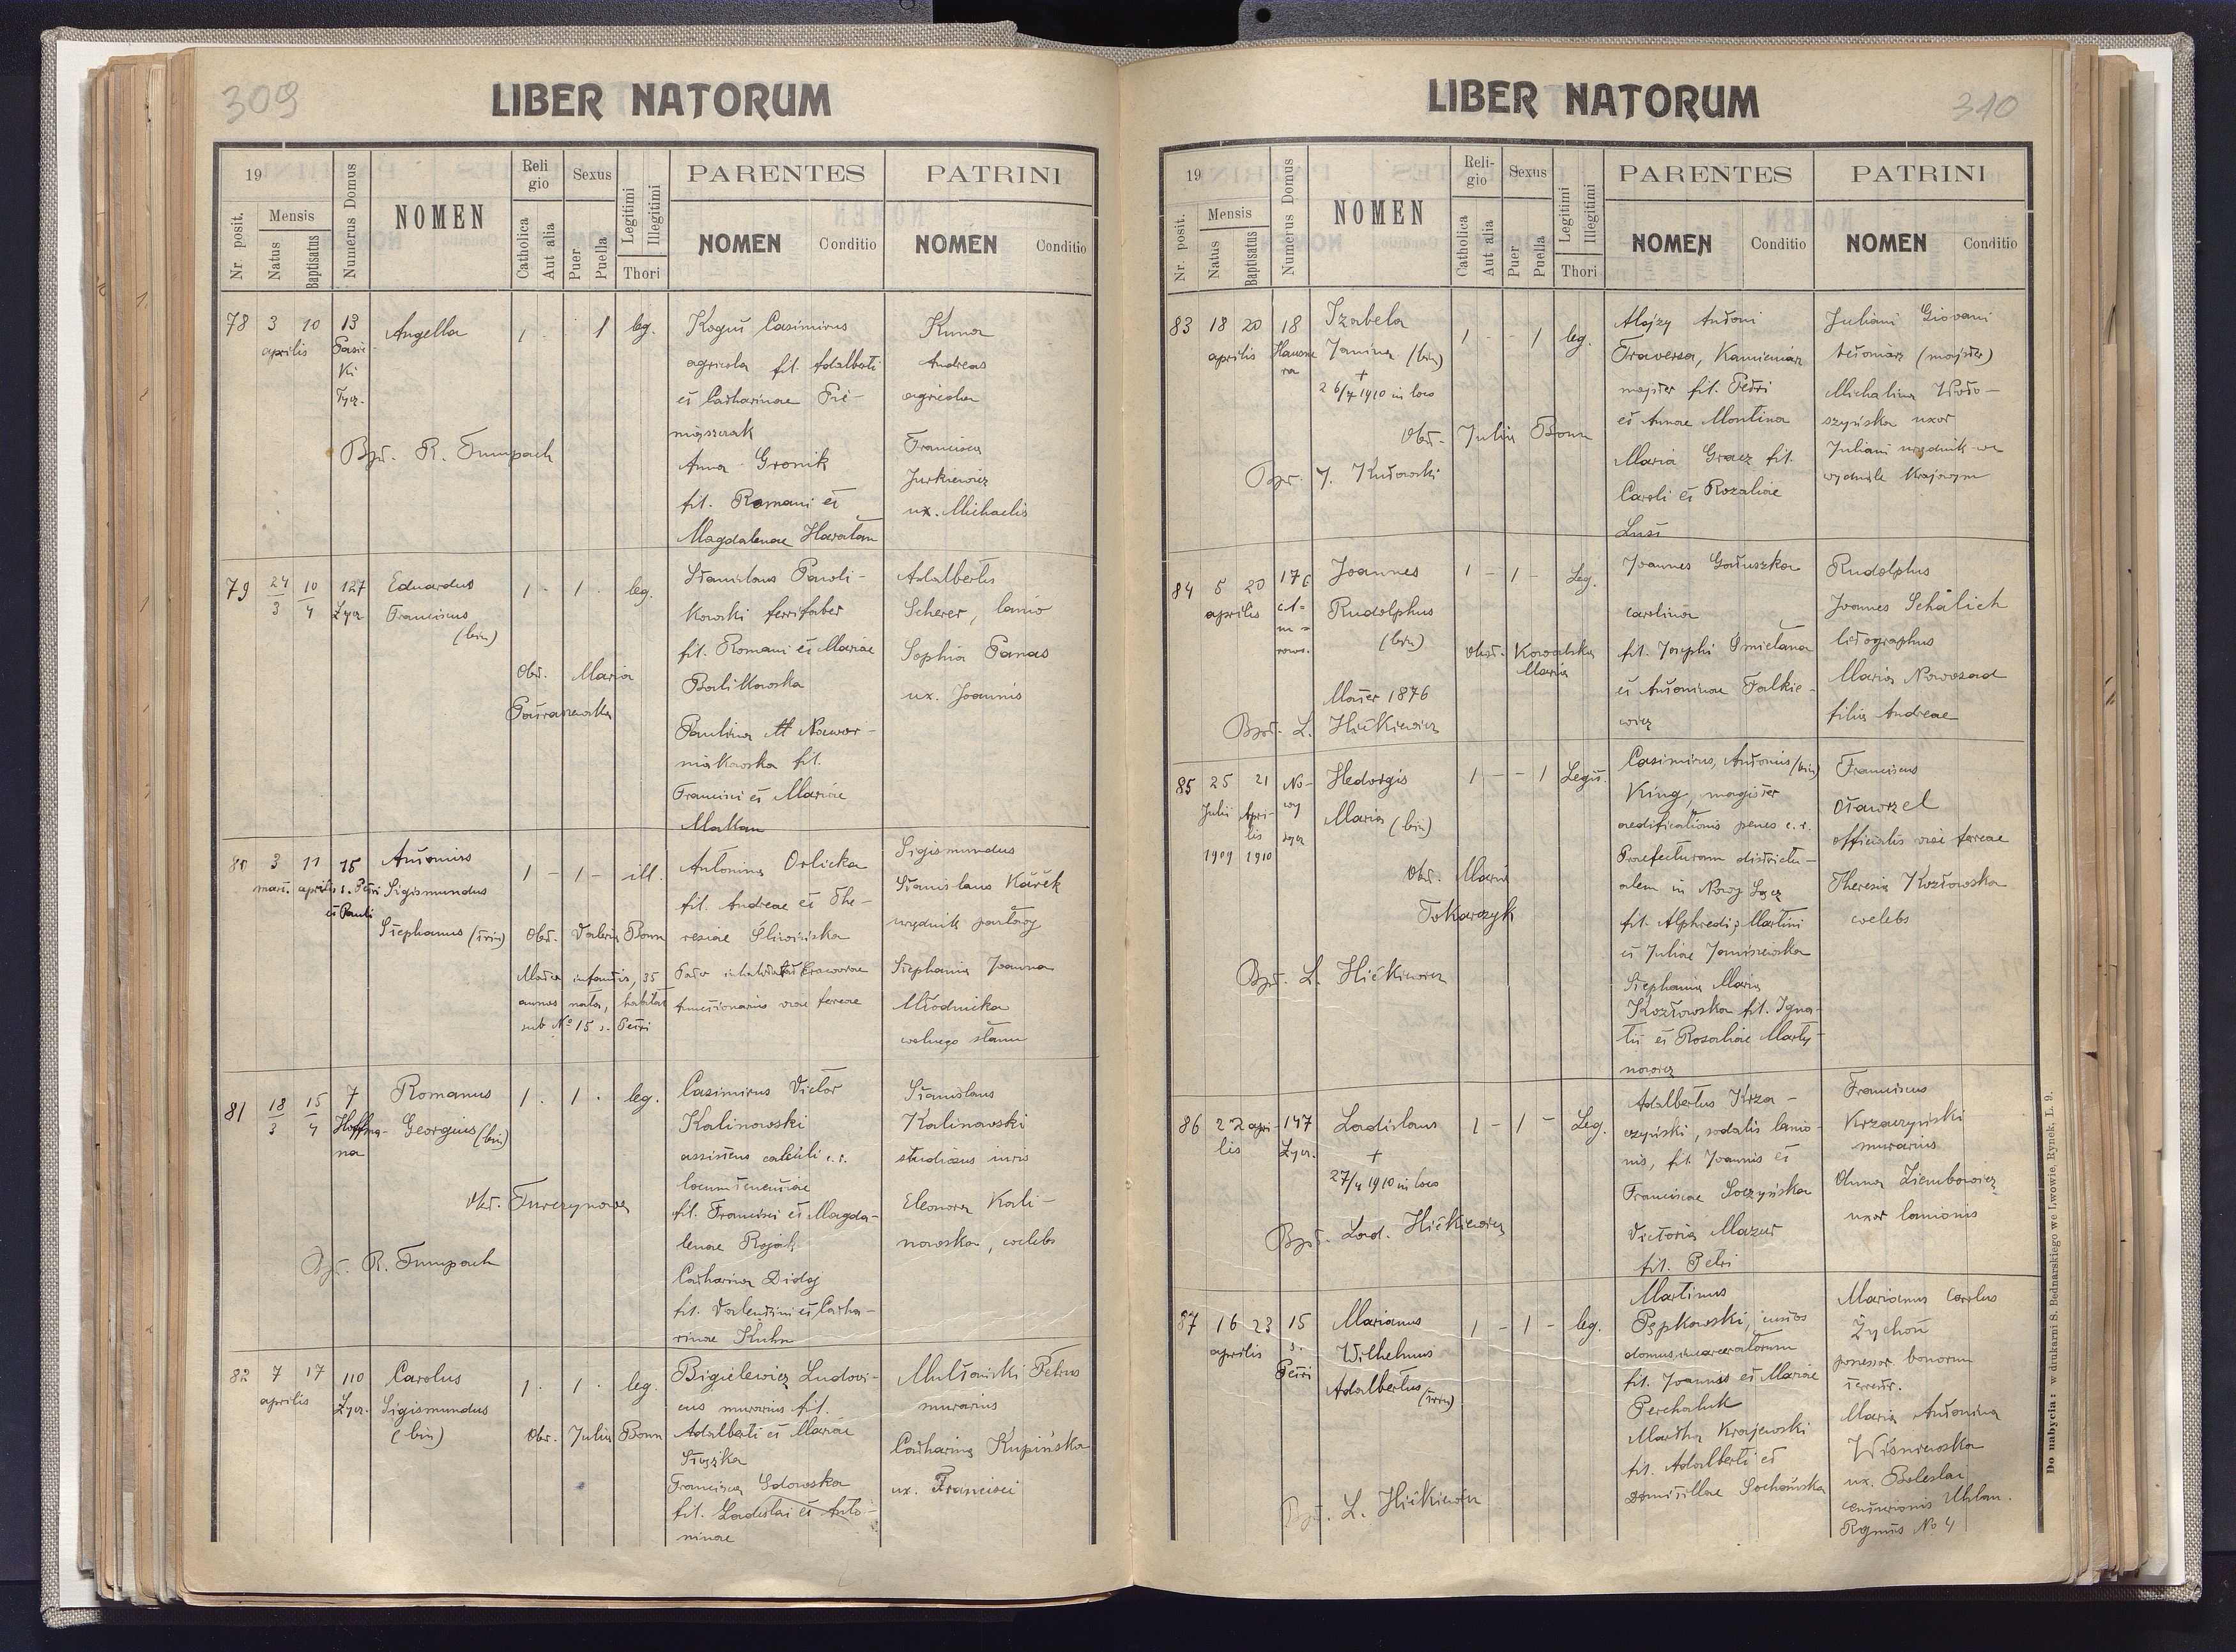 309
LIBER NATORUM
19
Nr. posit.
Mensis
Natus
Baptisatus
Numerus Domus
NOMEN
Religio
Catholica
Aut alia
Sexus
Puer
Puella
Legitimi
Illegitimi
Thori
PARENTES
NOMEN Conditio
PATRINI
NOMEN Conditio
78 3 10 aprilis
13
Angella
1 1 leg.
Bpt. R. Tumpach
Casimirus
agricola fil. Adalberti
et Catharinae
Anna Gronik
fil. Romani et
Magdalenae
Kuna
Andreas
agricola
Francisca
Jurkiewicz
ux. Michaelis
79 24/3 10/4
127
Eduardus
Franciscus
(bin)
1 - 1 - leg.
Obst. Maria
Stanislaus Pawli-
kowski ferrifaber
fil. Romani et Mariae
Paulina
fil.
Francisci et Mariae
Adalbertus
Scherer, lanio
Sophia Panas
ux. Joannis
80 3 11
mart. aprilis
15
s. Petri
et Pauli
Antonius
Sigismundus
Stephanus (trin)
1 - 1 - ill.
Obst. Valeria Bonn
Mater infantis, 35
annos nata, habitat
sub No 15 s. Petri
Antonina Orlicka
fil. Andreae et The-
resiae Śliwińska
functionarius viae ferreae
Sigismundus
Stanislaus
urzędnik
Stephania Joanna
Młodnicka
wolnego stanu
81 18/3 15/4
7
Hoffma-
na
Romanus
Georgius (bin)
1 . 1 . leg.
Obst. Turczynowa
Bpt. R. Tumpach
Casimirus Victor
Kalinowski
assistens
fil. Francisci et Magda-
lenae
Catharina Didoj
fil. Valentini et Catha-
rinae Kuhn
Stanislaus
Kalinowski
studiosus iuris
Eleonora Kali-
nowska, coelebs
82 7 17
aprilis
110
Łycz.
Carolus
Sigismundus
(bin)
1 . 1 . leg.
Obst. Julia Bonn
Bigielewicz Ludovi-
cus murarius fil.
Adalberti et Mariae
Francisca
fil. Ladislai et Anto-
ninae
Petrus
murarius
Catharina Kupińska
ux. Francisci
LIBER NATORUM
310
19
Nr. posit.
Mensis
Natus
Baptisatus
Numerus Domus
NOMEN
Religio
Catholica
Aut alia
Sexus
Puer
Puella
Legitimi
Illegitimi
Thori
PARENTES
NOMEN Conditio
PATRINI
NOMEN Conditio
83 18 20
aprilis
18
Izabela
Janina (bin)
+
26/4 1910 in loco
1 - - 1 leg.
Obst. Julia Bonn
Bpt. J. Kutowski
Alojzy Antoni
Traversa, Kamieniarz
majster fil. Petri
et Annae Montina
Maria Gracz fil.
Caroli et Rozaliae
Lusi
Juliani Giovani
(majster)
Michalina Woło-
szyńska uxor
Juliani urzędnik w
wydziale krajowym
84 5 20
aprilis
Joannes
Rudolphus
(bin)
1 - 1 - Leg.
Obst. Kowalska
Maria
Mater 1876
Bpt. L. Hićkiewicz
Joannes Gałuszka
Carolina
fil. Josephi Śmietana
et Antoninae Falkie-
wicz
Rudolphus
Joannes Schälich
litographus
Maria Nowosad
filia Andreae
85 25 21
Julii Apri-
lis
1909 1910
No-
wy
Hedvigis
Maria (bin)
1 - - 1 Legit.
Obst. Maria
Tokarczyk
Bpt. L. Hićkiewicz
Casimirus, Antonius (bin)
King, magister
aedificationis penes c. r.
Praefecturam districtu-
alem in Nowy Sącz
fil. Alphredi, Martini
et Juliae Janiszewska
Stephania Maria
Kozłowska fil. Igna-
tii et Rosaliae Marty-
nowicz
Franciscus
officialis viae ferreae
Theresia Kozłowska
coelebs
86 22 apri-
lis
147
Łycz.
Ladislaus
+
27/4 1910 in loco
1 - 1 - Leg.
Bpt. Lad. Hićkiewicz
Adalbertus Krza-
czyński, sodalis lanio-
nis, fil. Joannis et
Franciscae Soczyńska
Victoria Mazur
fil. Petri
Franciscus
Krzaczyński
murarius
Anna Ziembowicz
uxor lanionis
87 16 23
aprilis
15
s.
Petri
Marianus
Wilhelmus
Adalbertus (trin)
1 - 1 - leg.
Bpt. L. Hićkiewicz
Martinus
Pępkowski, custos
domus incarceratorum
fil. Joannis et Mariae
Perchaluk
Martha Krajewski
fil. Adalberti et
Domicillae Sochańska
Marianus Carolus
Zychoń
possessor bonorum
terrestr.
Maria Antonina
Wiśniewska
ux. Boleslai
centurionis Uhlan.
No 4
Do nabycia: w drukarni S. Bednarskiego we Lwowie, Rynek, L. 9.